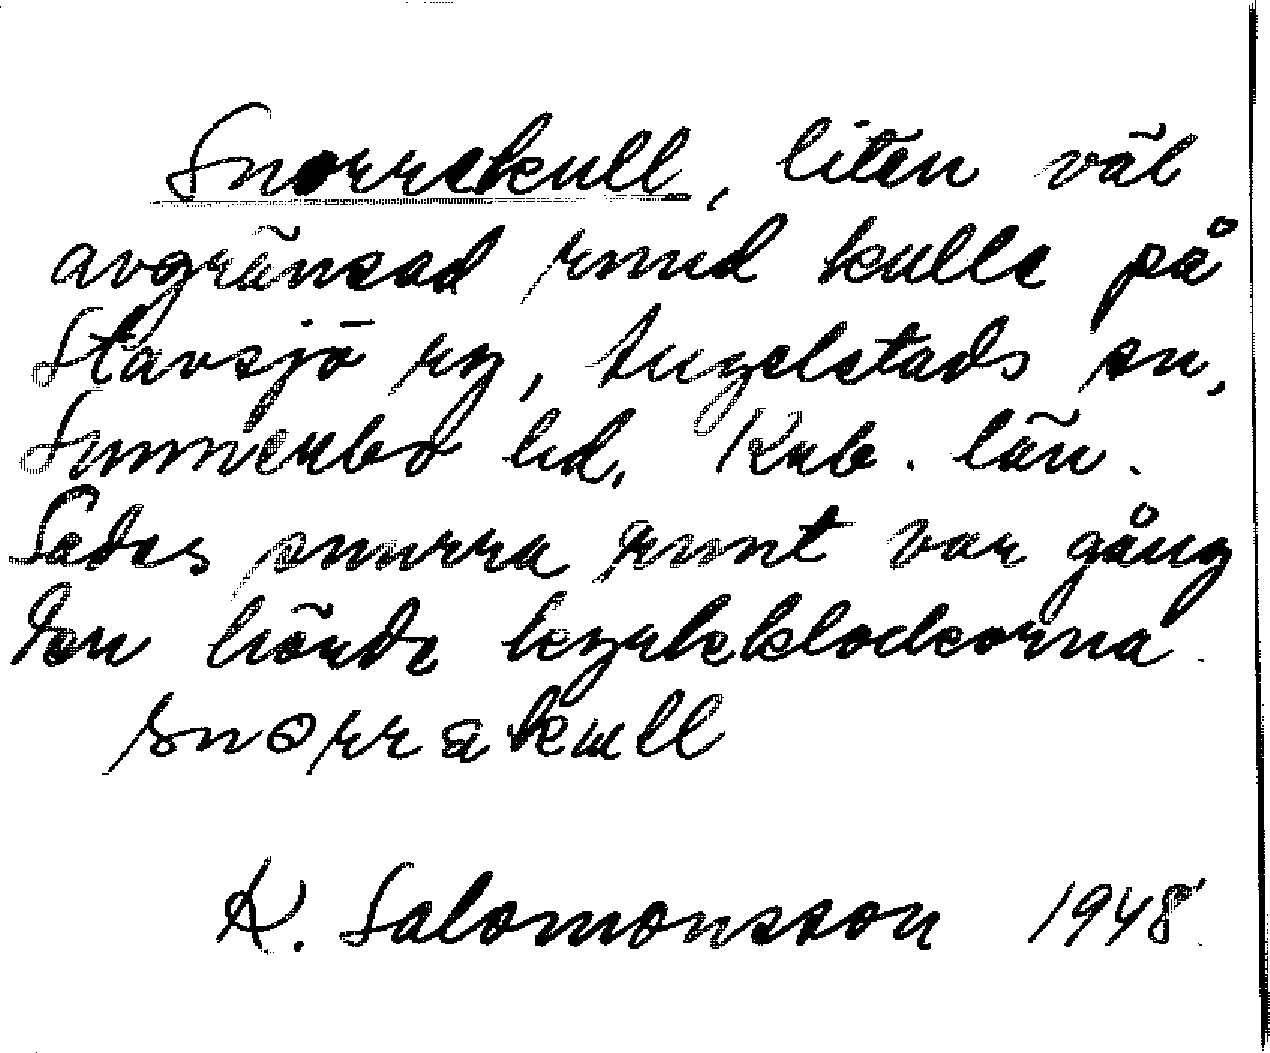 Snorrekull, liten väl
avgränsad rund kulle på
Stavsjö äg, Angelstads sn,
Sunnerbo hd, Krb. län.
Sades snurra runt var gång
den hörde kyrkklockorna.
snorrakull
K. Salomonsson 1948.